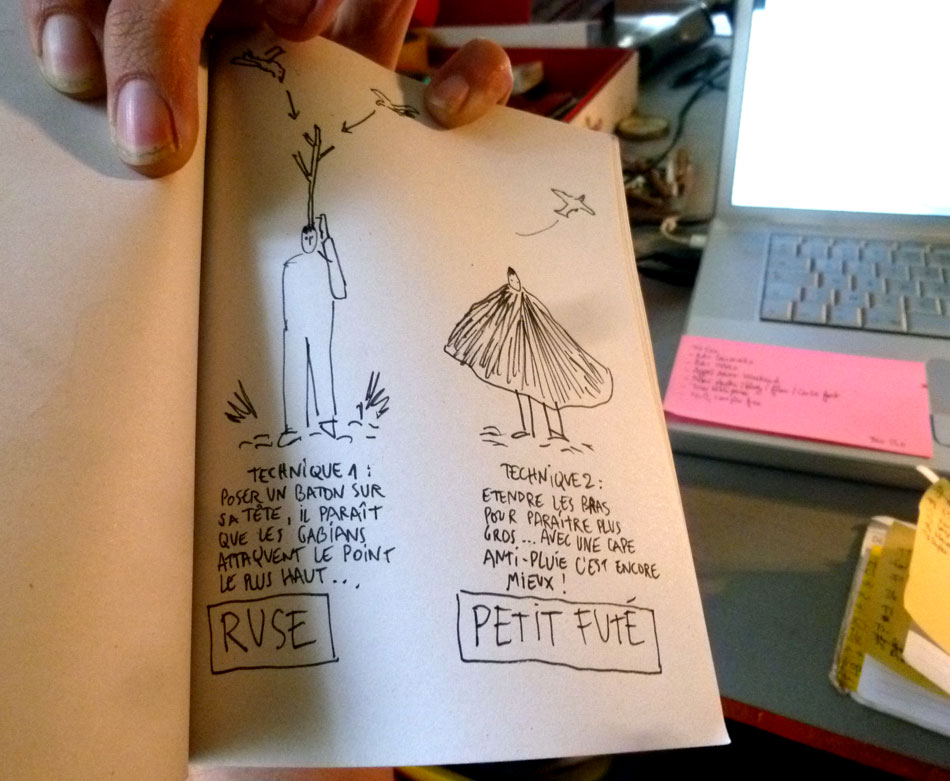 TECHNIQUE 1 :
POSER UN BATON SUR
SA TÊTE, IL PARAÎT
QUE LES GABIANS
ATTAQUENT LE POINT
LE PLUS HAUT...
RUSE
TECHNIQUE 2 :
ETENDRE LES BRAS
POUR PARAÎTRE PLUS
GROS... AVEC UNE CAPE
ANTI-PLUIE C'EST ENCORE
MIEUX !
PETIT FUTÉ